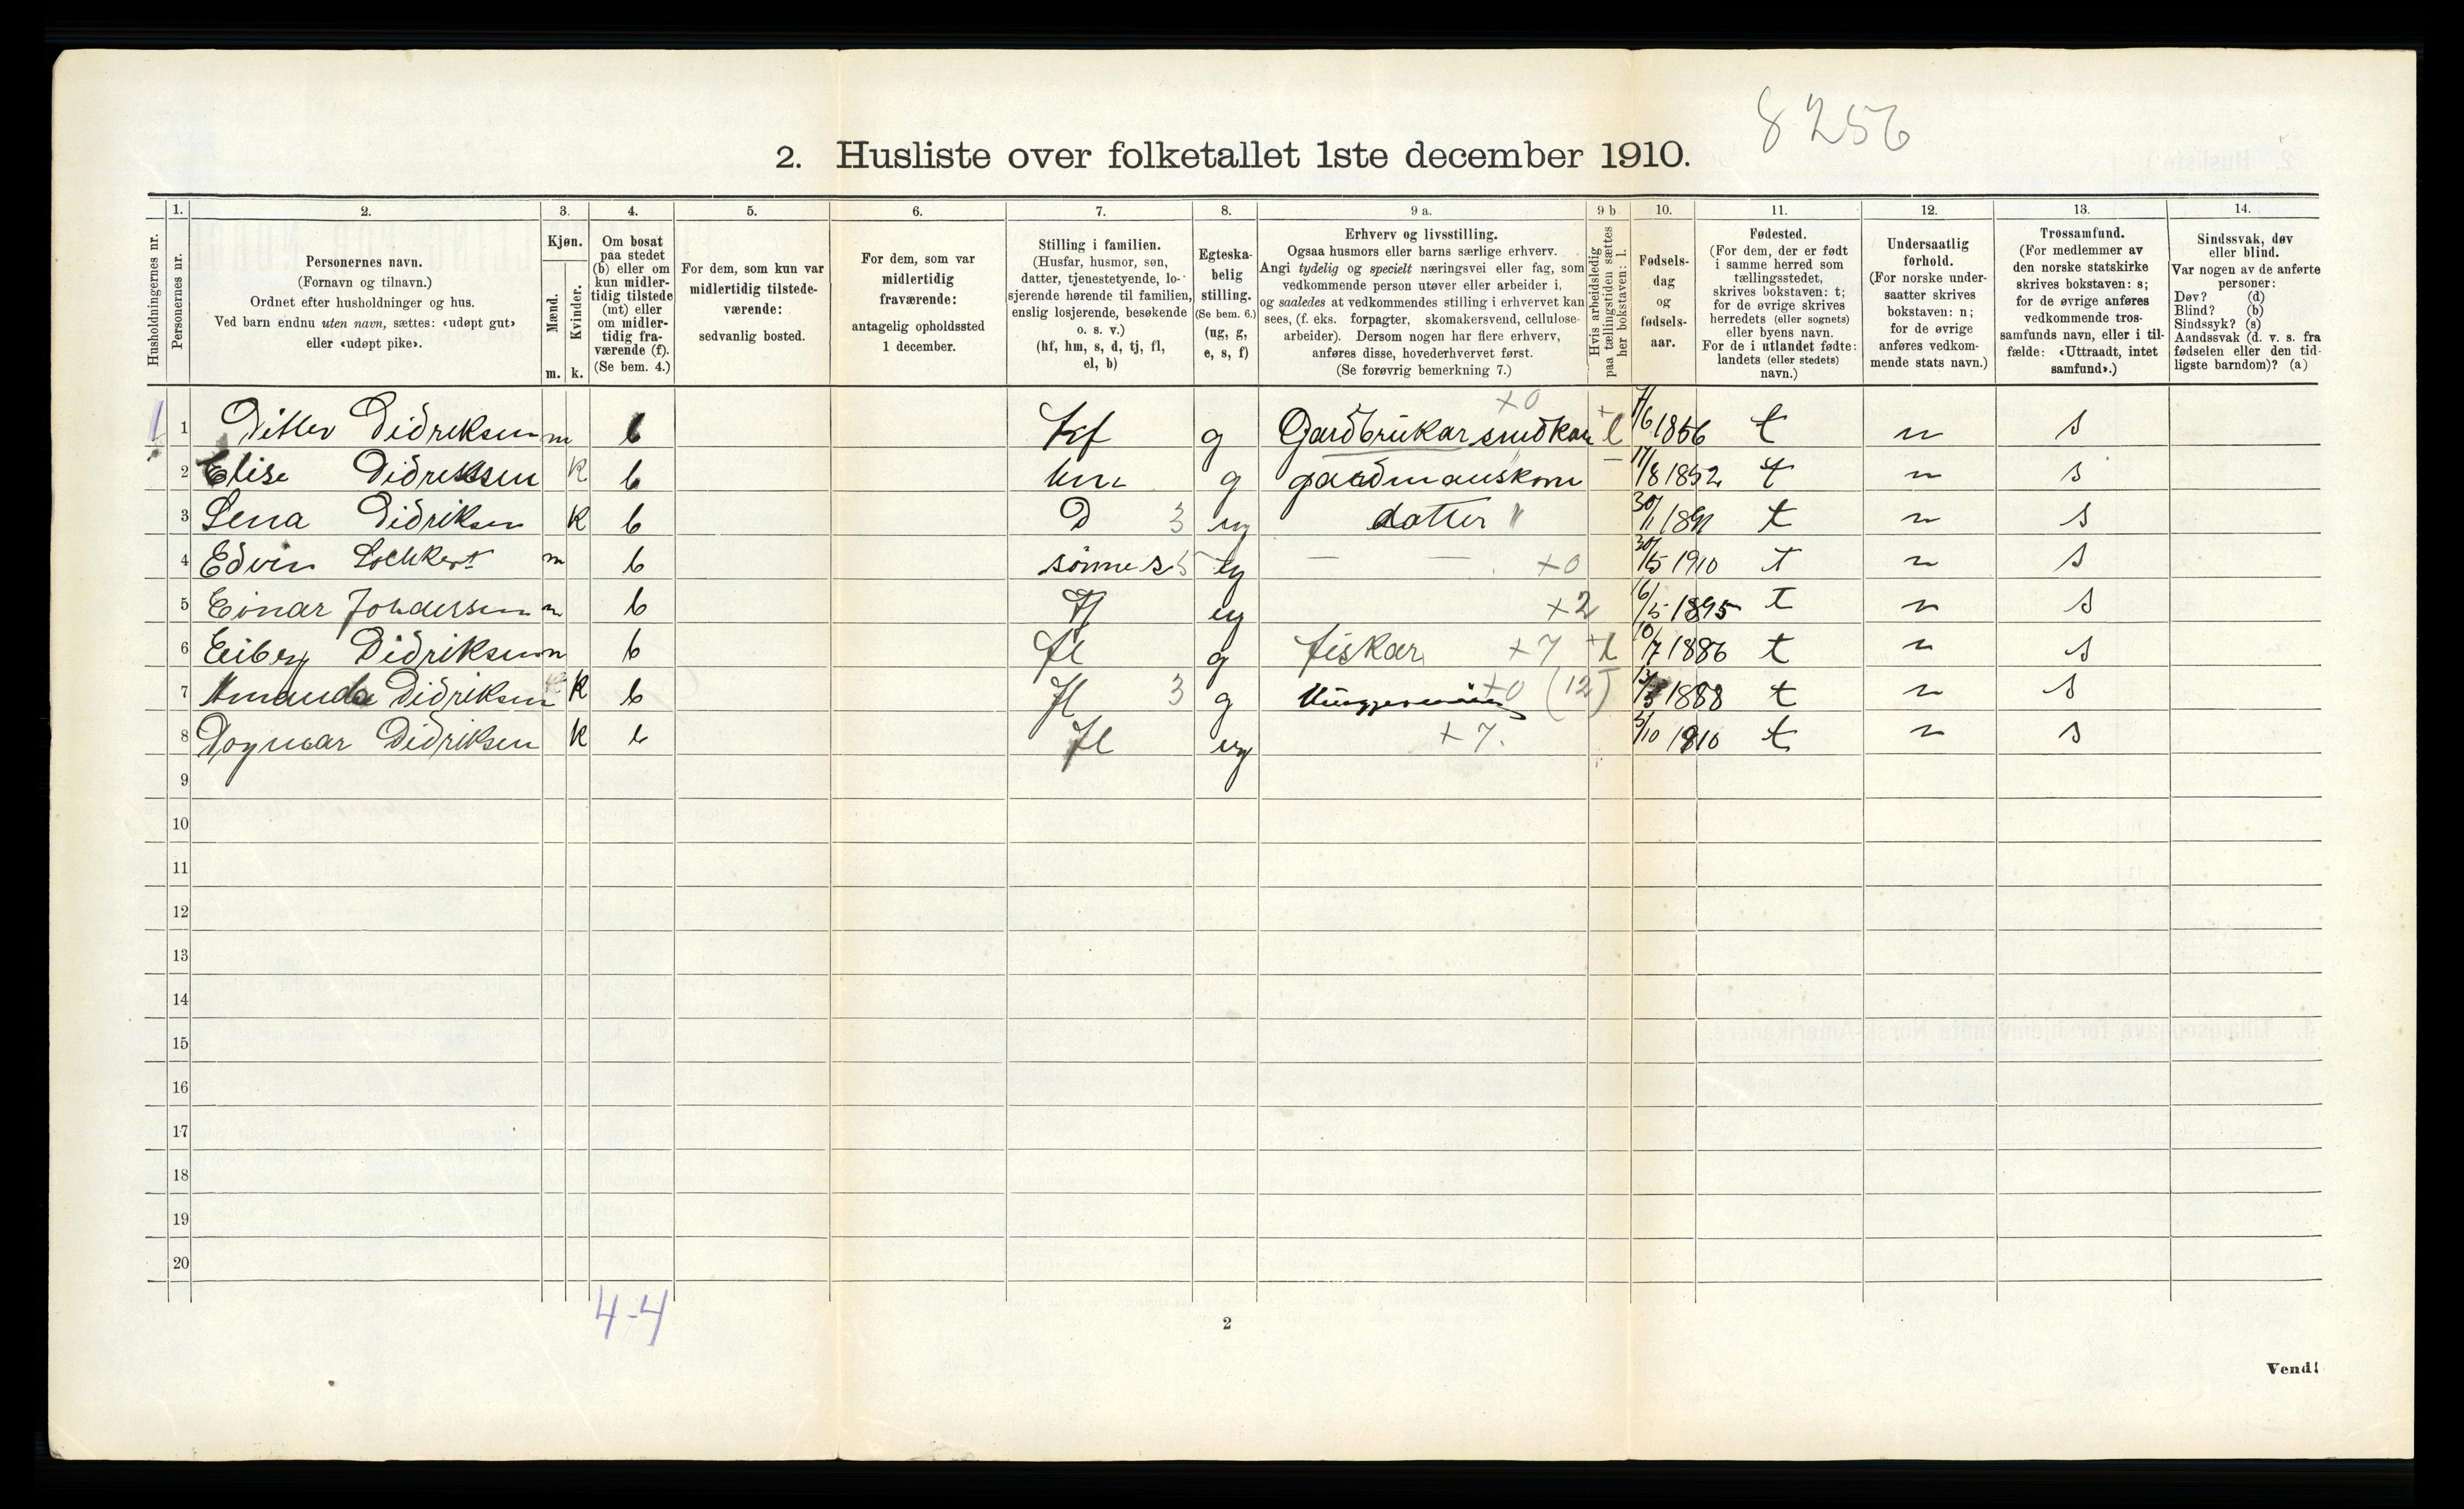 8256
2. Husliste over folketallet 1ste december 1910.
Husholdningernes nr.
1.
Personernes nr.
2.
Personernes navn.
(Fornavn og tilnavn.)
Ordnet efter husholdninger og hus.
Ved barn endnu uten navn, sættes: «udøpt gut»
eller «udøpt pike».
3.
Kjøn.
Mænd.
Kvinder.
m. k.
4.
Om bosat
paa stedet
(b) eller om
kun midler-
tidig tilstede
(mt) eller
om midler-
tidig fra-
værende (f).
(Se bem. 4.)
5.
For dem, som kun var
midlertidig tilstede-
værende:
sedvanlig bosted.
6.
For dem, som var
midlertidig
fraværende:
antagelig opholdssted
1 december.
7.
Stilling i familien.
(Husfar, husmor, søn,
datter, tjenestetyende, lo-
sjerende hørende til familien,
enslig losjerende, besøkende
o. s. v.)
(hf, hm, s, d, tj, fl,
el, b)
8.
Egteska-
belig
stilling.
(Se bem. 6.)
(ug, g,
e, s, f)
9 a.
Erhverv og livsstilling.
Ogsaa husmors eller barns særlige erhverv.
Angi tydelig og specielt næringsvei eller fag, som
vedkommende person utøver eller arbeider i,
og saaledes at vedkommendes stilling i erhvervet kan
sees, (f. eks. forpagter, skomakersvend, cellulose-
arbeider). Dersom nogen har flere erhverv,
anføres disse, hovederhvervet først.
(Se forøvrig bemerkning 7.)
9 b
Hvis arbeidsledig
paa tællingstiden sættes
her bokstaven: l.
10.
Fødsels-
dag
og
fødsels-
aar.
11.
Fødested.
(For dem, der er født
i samme herred som
tællingsstedet,
skrives bokstaven: t;
for de øvrige skrives
herredets (eller sognets)
eller byens navn.
For de i utlandet fødte:
landets (eller stedets)
navn.)
12.
Undersaatlig
forhold.
(For norske under-
saatter skrives
bokstaven: n;
for de øvrige
anføres vedkom-
mende stats navn.)
13.
Trossamfund.
(For medlemmer av
den norske statskirke
skrives bokstaven: s;
for de øvrige anføres
vedkommende tros-
samfunds navn, eller i til-
fælde: «Uttraadt, intet
samfund».)
14.
Sindssvak, døv
eller blind.
Var nogen av de anførte
personer:
Døv? (d)
Blind? (b)
Sindssyk? (s)
Aandssvak (d. v. s. fra
fødselen eller den tid-
ligste barndom)? (a)
1 1 Ditlev Didriksen m b hf g Gardbrukar +0 l 7/6 1856 t n s
2 Elise Didriksen k b hm g gardmanskone 17/8 1852 t n s
3 Lena Didriksen k b D 3 ug datter " 30/1 t n s
4 Edvin m b 5 ug — — +0 30/5 1910 t n s
5 Einar Johansen m b fl ug +2 16/5 1895 t n s
6 Didriksen m b fl g fiskar +7 l 10/7 1886 t n s
7 Amanda Didriksen k b fl 3 g +0 (12) 1888 t n s
8 Dagmar Didriksen k b fl ug +7. 5/10 1910 t n s
9
10
11
12
13
14
15
16
17
18
19
20
4-4
2
Vend!